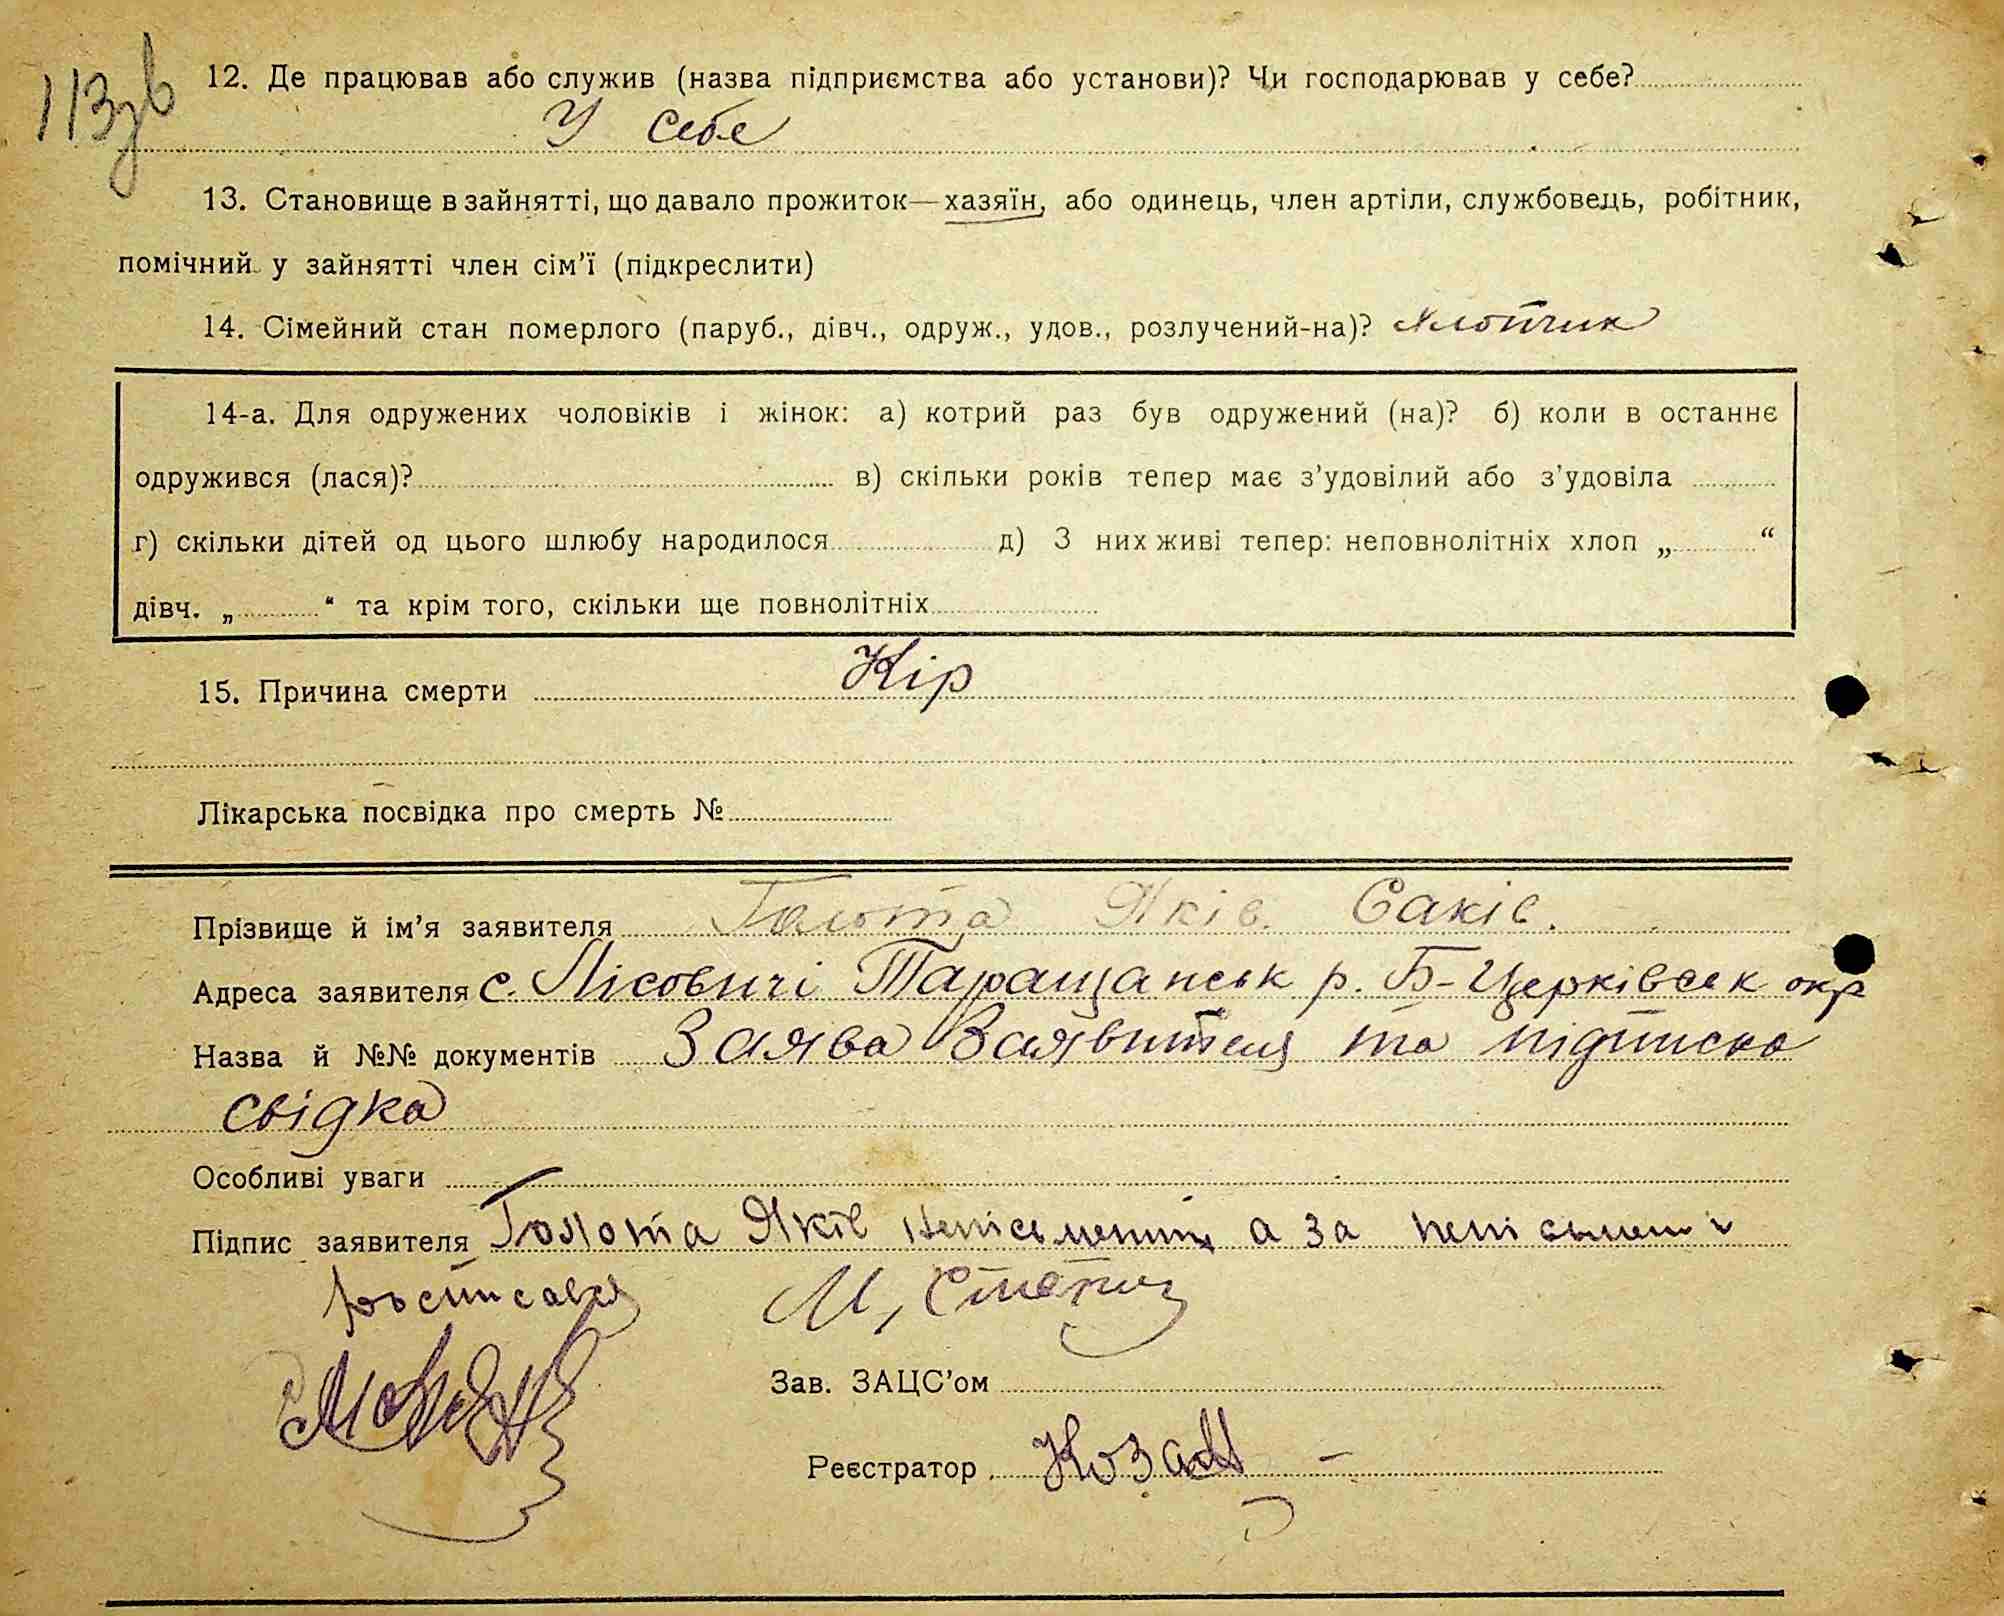 113зв
12. Де працював або служив (назва підприємства або установи)? Чи господарював у себе?
У себе
13. Становище в зайнятті, що давало прожиток—хазяїн, або одинець, член артіли, службовець, робітник,
помічний у зайнятті член сім’ї (підкреслити)
14. Сімейний стан померлого (паруб., дівч., одруж., удов., розлучений-на)? Хлопчик
14-а. Для одружених чоловіків і жінок: а) котрий раз був одружений (на)? б) коли в останнє
одружився (лася)? в) скільки років тепер має з’удовілий або з’удовіла
г) скільки дітей од цього шлюбу народилося д) З них живі тепер: неповнолітніх хлоп „ “
дівч. „ “ та крім того, скільки ще повнолітніх
15. Причина смерти Кір
Лікарська посвідка про смерть №
Прізвище й ім’я заявителя Голота Яків. Саків.
Адреса заявителя с. Лісовичі Таращанськ р. Б-Церківськ окр
Назва й №№ документів Заява Заявителя та підписка
свідка
Особливі уваги
Підпис заявителя Голота Яків а за
М,
Зав. ЗАЦС’ом
Реєстратор